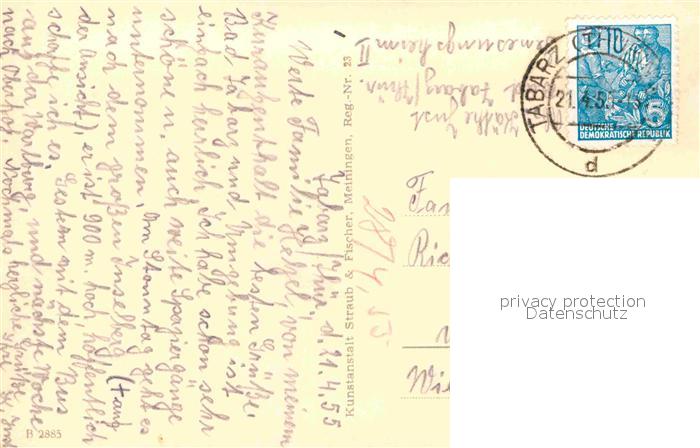 Tabarz/Thür. d. 21.4.55
Werte Familie Hetzel, von meinem
Kuraufenthalt die besten Grüße.
Bad Tabarz und Umgebung ist
einfach herrlich, ich habe schon sehr
schöne u. auch weite Spaziergänge
unternommen. Am Sonntag geht es
nach dem großen Inselberg (+ auf
der Ansicht), er ist 900 m. hoch, hoffentlich
schaffe ich es. Gestern mit dem Bus
auf der Wartburg, und nächste Woche
nach Oberhof. Nochmals herzliche Grüße
B 2885
Kunstanstalt Straub & Fischer, Meiningen, Reg.-Nr. 23
Käthe Just
Tabarz/Thür.
Genesungsheim II
28/4. 55
TABARZ (THÜR)
21.4.5
d
DEUTSCHE
DEMOKRATISCHE REPUBLIK
Fam
Wie
privacy protection
Datenschutz